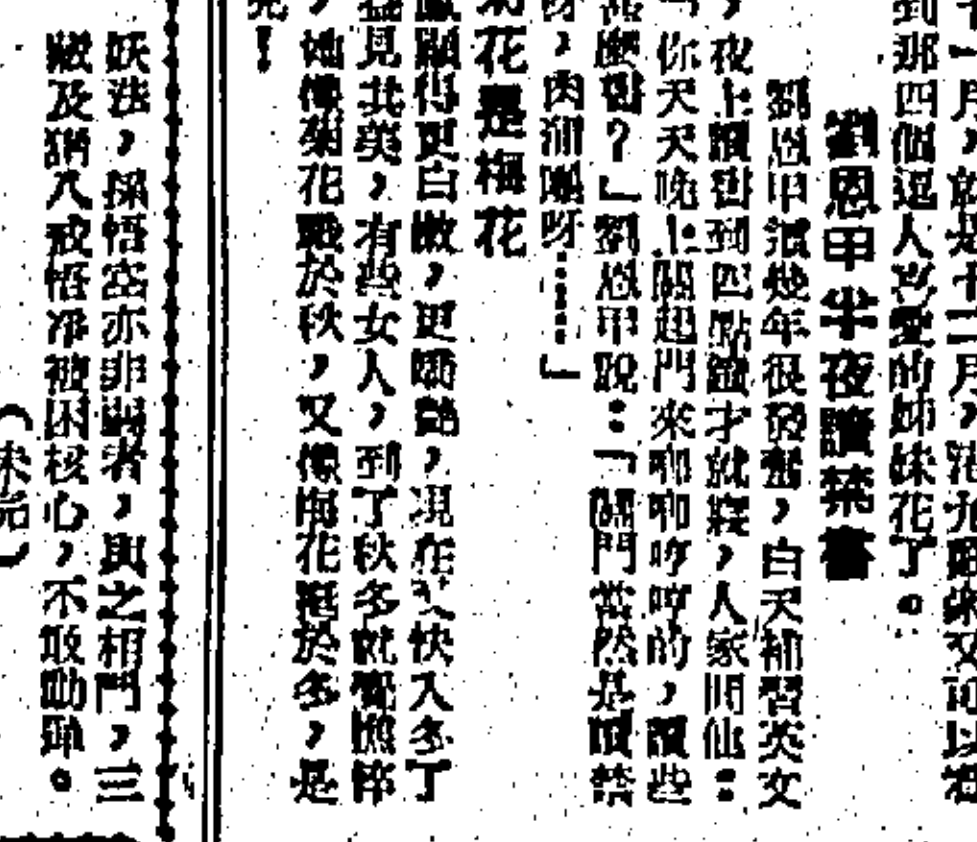 十一月，就是十二月，港九觀衆又可以看
到那四個逗人喜愛的姊妹花了。
劉恩甲半夜讀禁書
劉恩甲這幾年很發奮，白天補習英文
，夜上讀書到四點鐘才就寢，人家問他：
你天天晚上關起門來唧唧哼哼的，讀些
甚麼書？」劉恩甲說：「關門當然是讀禁
呀，肉浦團呀⋯⋯」
菊花是梅花
顯得更白嫩，更嬌艷，現在又快入冬了
見其美，有些女人，到了秋冬就覺憔悴
，她像菊花戰於秋，又像梅花挺於冬，是
！
妖法，孫悟空亦非鬥者，與之相鬥，三
敵及豬八戒悟淨被困核心，不敢動彈。
（未完）